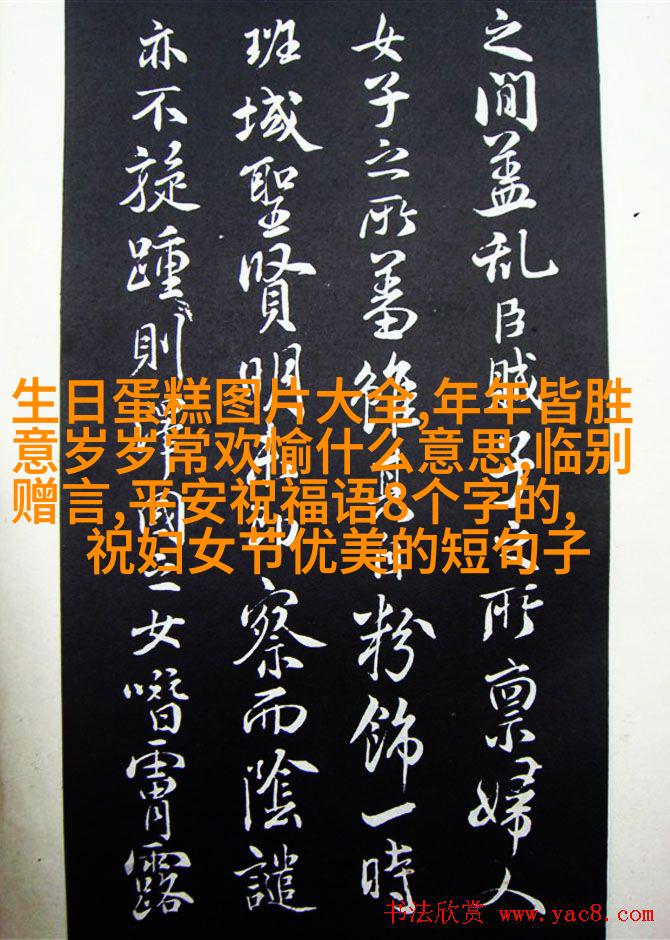 之間蓋乱臣賊子之所禀婦人
女子之所蓄雖粉飾一時
班域聖賢明察而陰譴
亦不旋踵則國之女噆霄露
生日蛋糕图片大全,年年皆胜
意岁岁常欢愉什么意思,临别
赠言,平安祝福语8个字的,
祝妇女节优美的短句子
书法欣赏 www.yac8.com